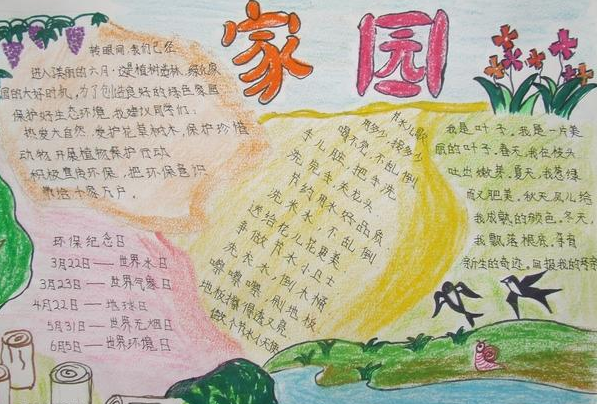 家园
转眼间,我们已经
进入美丽的六月,这是植树造林、绿化家
园的大好时机,为了创造良好的绿色家园
保护好生态环境,我建议同学们:
热爱大自然,爱护花草树木,保护珍惜
动物,开展植物保护行动
积极宣传环保,把环保意识
带给千家万户。
环保纪念日
3月22日——世界水日
3月23日——世界气象日
4月22日——地球日
5月31日——世界无烟日
6月5日——世界环境日
节水儿歌
用多少,接多少
喝不完,不乱倒
手儿脏,把手洗
洗完手,关龙头
节约用水好品质
洗米水,不乱倒
送给花儿花更美
争做节水小卫士
洗衣水,倒水桶
嚓嚓嚓,刷地板
地板擦得透又亮
我是叶子,我是一片美
丽的叶子。春天,我在枝头
吐出嫩芽。夏天,我葱绿
而又肥美。秋天风儿给
我成熟的颜色。冬天,
我飘落根底,孕育
新生的奇迹。